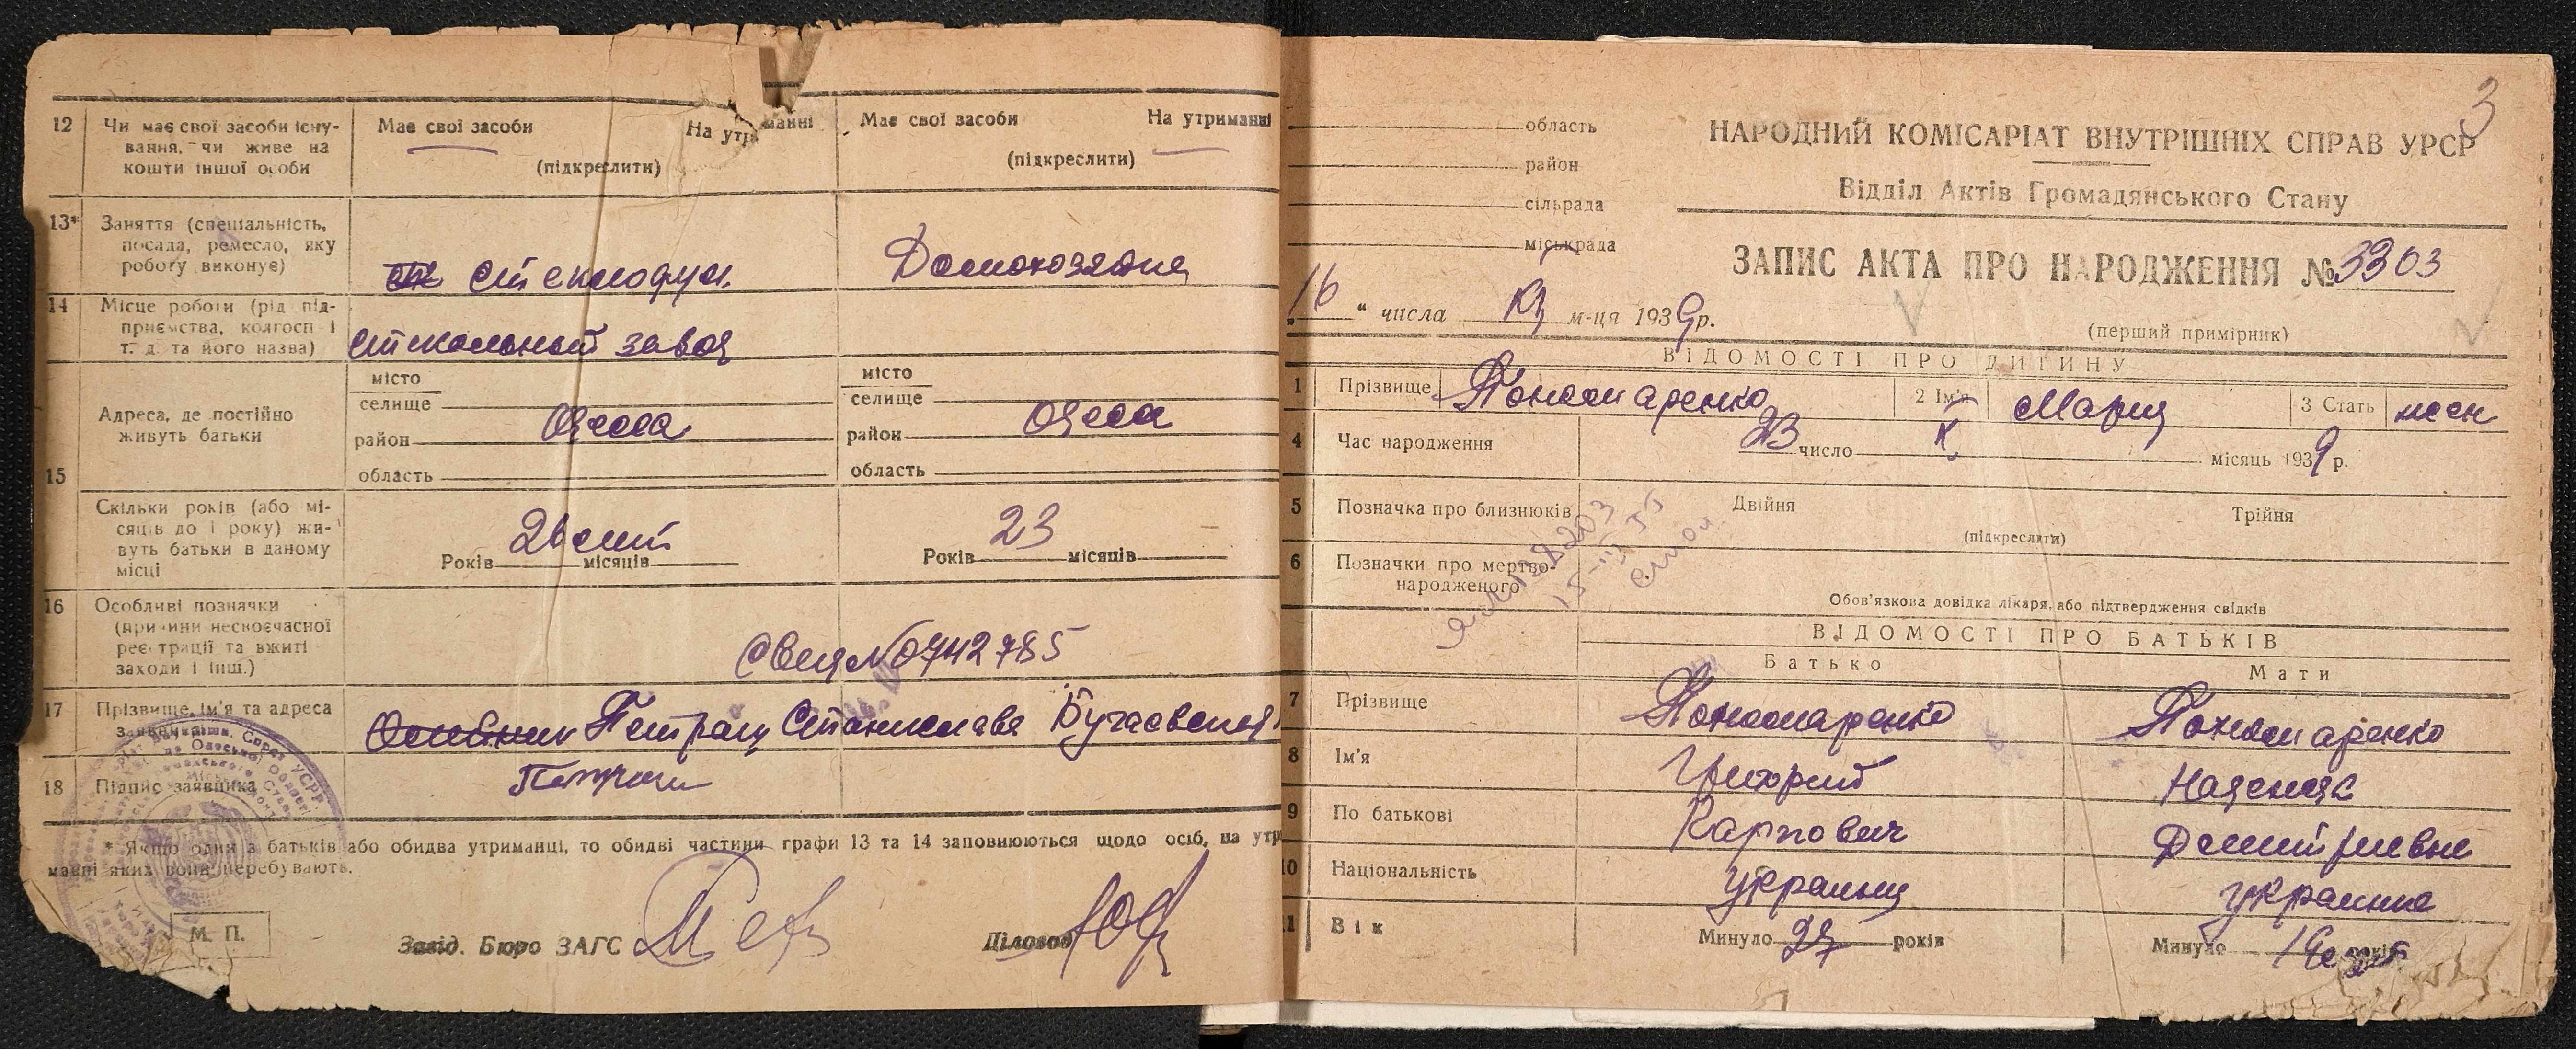 12 Чи має свої засоби існування, чи живе на кошти іншої особи
Має свої засоби На утриманні
(підкреслити)
Має свої засоби На утриманні
(підкреслити)
13* Заняття (спеціальність, посада, ремесло, яку роботу виконує)
Домохозяйка
14 Місце роботи (рід підприємства, колгосп і т. д. та його назва)
завод
15 Адреса, де постійно живуть батьки
місто
селище
район Одесса
область
місто
селище
район Одесса
область
Скільки років (або місяців до 1 року) живуть батьки в даному місці
Років місяців
Років 23 місяців
16 Особливі позначки (причини несвоєчасної реєстрації та вжиті заходи і інш.)
№ 0942785
17 Прізвище, ім'я та адреса заявника
Станислава
18 Підпис заявника
* Якщо один з батьків або обидва утриманці, то обидві частини графи 13 та 14 заповнюються щодо осіб, на утриманні яких вони перебувають.
М. П.
Завід. Бюро ЗАГС
Діловод
3
область
район
сільрада
міськрада
НАРОДНИЙ КОМІСАРІАТ ВНУТРІШНІХ СПРАВ УРСР
Відділ Актів Громадянського Стану
ЗАПИС АКТА ПРО НАРОДЖЕННЯ № 3303
„16“ числа XI м-ця 1939 р.
(перший примірник)
ВІДОМОСТІ ПРО ДИТИНУ
1 Прізвище Пономаренко 2 Ім'я Мария 3 Стать жен
4 Час народження 23 число X місяць 1939 р.
5 Позначка про близнюків Двійня Трійня
(підкреслити)
6 Позначки про мертвонародженого
Обов'язкова довідка лікаря, або підтвердження свідків
ВІДОМОСТІ ПРО БАТЬКІВ
Батько Мати
7 Прізвище Пономаренко Пономаренко
8 Ім'я Григорий Надежда
9 По батькові Карпович Дмитриевна
10 Національність украинец украинка
11 Вік Минуло 27 років Минуло років